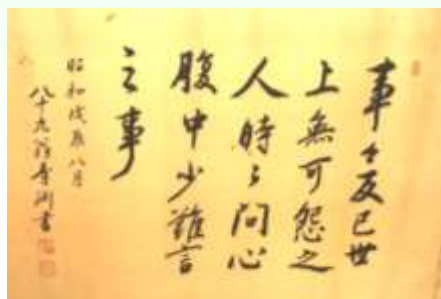 事々反已世
上無可怨之
人時々问心
腹中少難言
之事
昭和戊辰八月
八十九翁壽川書